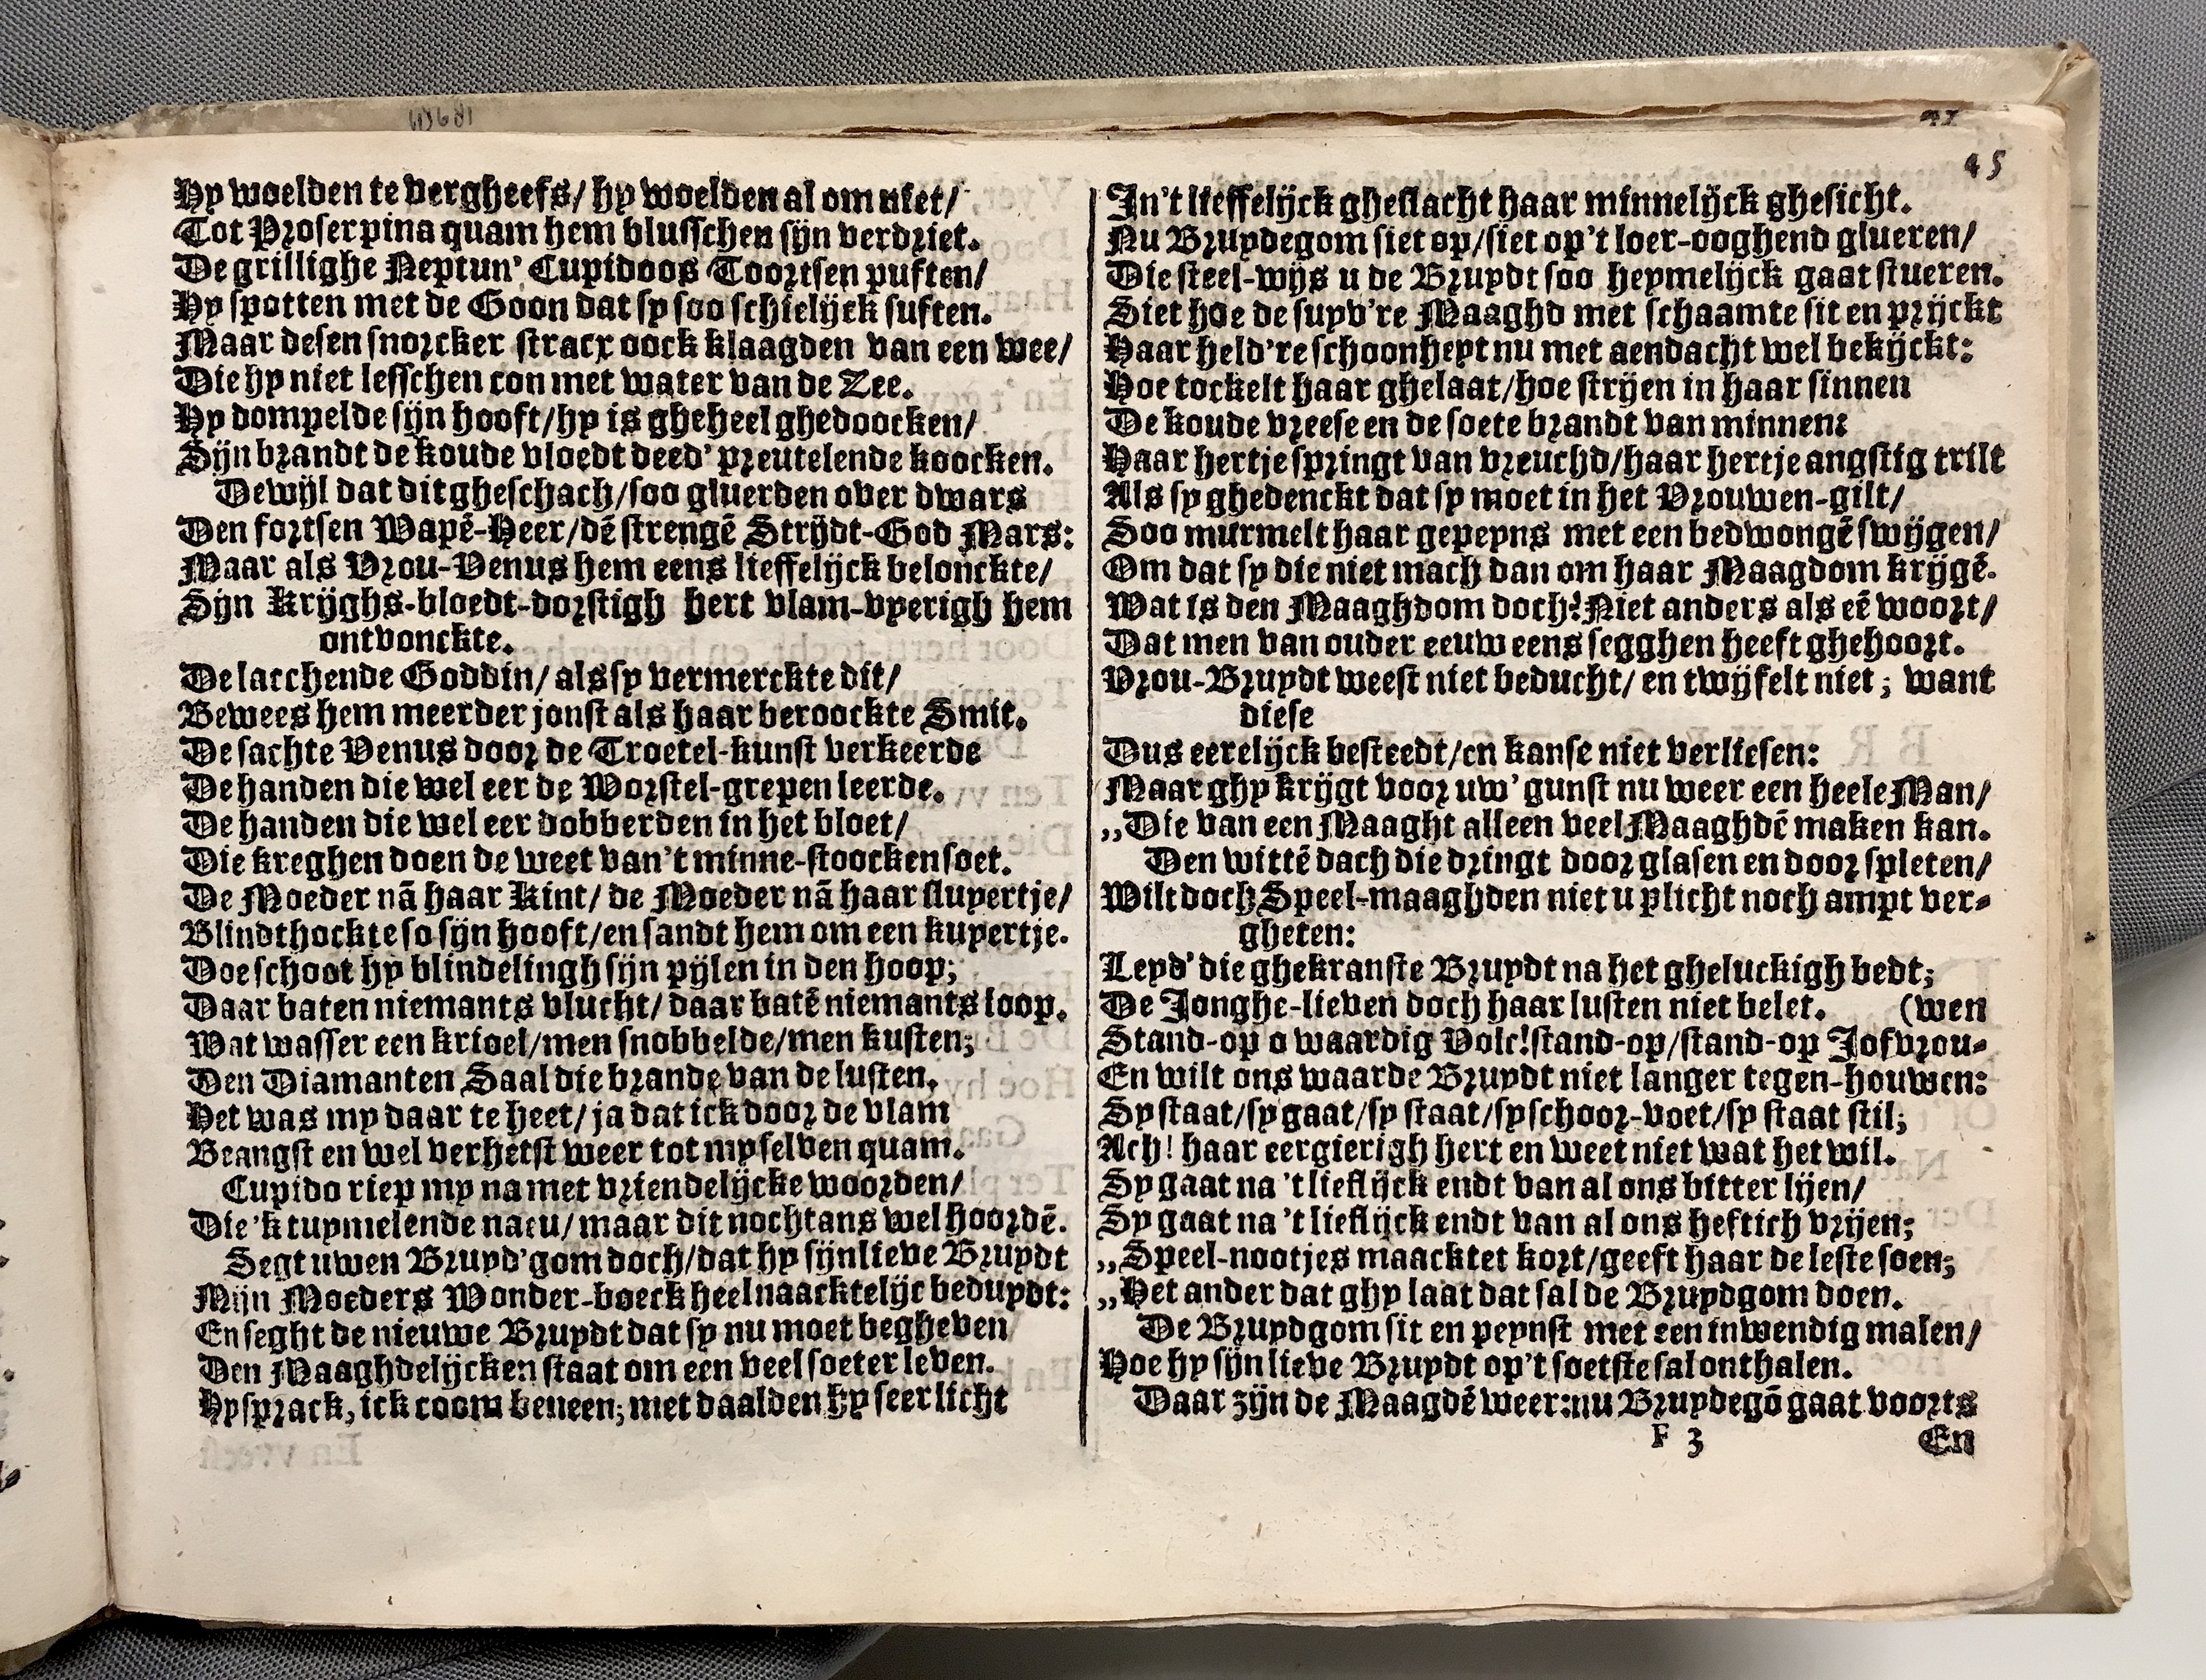 45
Hy woelden te vergheefs/ hy woelden al om niet/
Tot Proserpina quam hem blusschen sijn verdriet.
De grillighe Neptun' Cupidoos Toortsen puften/
Hy spotten met de Goon dat sy soo schielijck suften.
Maar desen snorcker stracx oock klaagden van een wee/
Die hy niet lesschen con met water van de Zee.
Hy dompelde sijn hooft/hy is gheheel ghedoocken/
Sijn brandt de koude vloedt deed' preutelende koocken.
Dewijl dat dit gheschach/soo gluerden over dwars
Den fortsen Wapē-Heer/dē strengē Strijdt-God Mars:
Maar als Vrou-Venus hem eens lieffelijck belonckte/
Sijn Krijghs-bloedt-dorstigh hert vlam-vyerigh hem
ontvonckte.
De lacchende Goddin/ als sy vermerckte dit/
Bewees hem meerder jonst als haar beroockte Smit.
De sachte Venus door de Troetel-kunst verkeerde
De handen die wel eer de Worstel-grepen leerde.
De handen die wel eer dobberden in het bloet/
Die kreghen doen de weet van't minne-stoocken soet.
De Moeder nā haar Kint/ de Moeder nā haar sluyertje/
Blindthockte so sijn hooft/en sandt hem om een kuyertje.
Doe schoot hy blindelingh sijn pijlen in den hoop;
Daar baten niemants vlucht/ daar batē niemants loop.
Wat wasser een krioel/men snobbelde/men kusten;
Den Diamanten Saal die brande van de lusten.
Het was my daar te heet/ ja dat ick door de vlam
Beangst en wel verhetst weer tot my selven quam.
Cupido riep my na met vriendelijcke woorden/
Die 'k tuymelende nau/ maar dit nochtans wel hoordē.
Segt uwen Bruyd'gom doch/dat hy sijn lieve Bruydt
Mijn Moeders Wonder-boeck heel naacktelijc beduydt:
En seght de nieuwe Bruydt dat sy nu moet begheven
Den Maaghdelijcken staat om een veel soeter leven.
Hy sprack, ick coom beneen; met daalden hy seer licht
In't lieffelijck gheslacht haar minnelijck ghesicht.
Nu Bruydegom siet op/siet op't loer-ooghend glueren/
Die steel-wijs u de Bruydt soo heymelijck gaat stueren.
Siet hoe de suyv're Maaghd met schaamte sit en prijckt
Haar held're schoonheyt nu met aendacht wel bekijckt:
Hoe tockelt haar ghelaat/hoe strijen in haar sinnen
De koude vreese en de soete brandt van minnen:
Haar hertje springt van vreuchd/haar hertje angstig trilt
Als sy ghedenckt dat sy moet in het Vrouwen-gilt/
Soo murmelt haar gepeyns met een bedwongē swijgen/
Om dat sy die niet mach dan om haar Maagdom krijgē.
Wat is den Maaghdom doch? Niet anders als eē woort/
Dat men van ouder eeuw eens segghen heeft ghehoort.
Vrou-Bruydt weest niet beducht/ en twijfelt niet; want
diese
Dus eerelijck besteedt/en kanse niet verliesen:
Maar ghy krijgt voor uw' gunst nu weer een heele Man/
,,Die van een Maaght alleen veel Maaghdē maken kan.
Den wittē dach die dringt door glasen en door spleten/
Wilt doch Speel-maaghden niet u plicht noch ampt ver-
gheten:
Leyd' die ghekranste Bruydt na het gheluckigh bedt;
De Jonghe-lieven doch haar lusten niet belet. (wen
Stand-op o waardig Volc! stand-op/stand-op Jofvrou-
En wilt ons waarde Bruydt niet langer tegen-houwen:
Sy staat/sy gaat/sy staat/sy schoor-voet/sy staat stil;
Ach! haar eergierigh hert en weet niet wat het wil.
Sy gaat na 't lieflijck endt van al ons bitter lijen/
Sy gaat na 't lieflijck endt van al ons heftich vrijen;
,,Speel-nootjes maacktet kort/geeft haar de leste soen;
,,Het ander dat ghy laat dat sal de Bruydgom doen.
De Bruydgom sit en peynst met een inwendig malen/
Hoe hy sijn lieve Bruydt op't soetste sal onthalen.
Daar zijn de Maagdē weer: nu Bruydegō gaat voorts
F 3 En